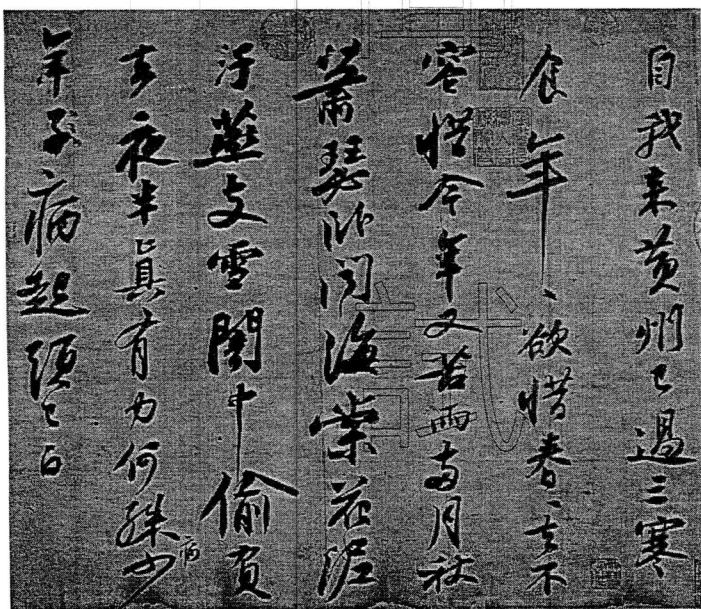 自我来黄州已過三寒
食年〻欲惜春〻去不
容惜今年又苦雨兩月秋
蕭瑟卧聞海棠花泥
汙燕支雪闇中偷負
去夜半真有力何殊少
年子病起須已白
病